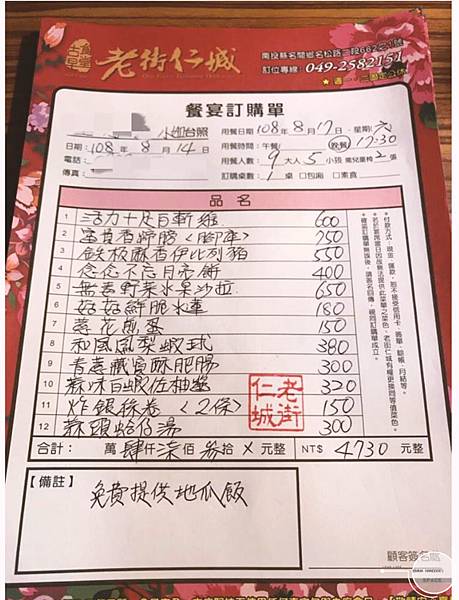 古早味
老街仁城
南投縣名間鄉名松路二段662之1號
訂位專線：049-2582151
★週一、二固定公休
餐宴訂購單
小姐台照
日期：108年8月14日
電話：
傳真：
用餐日期：108年8月17日、星期六
用餐時間：午餐 晚餐 17:30
用餐人數：9大人5小孩 需兒童椅2張
訂購桌數：1桌□包廂 □素食
品名
1 活力十足百斬雞 600
2 富貴香蹄膀〈腳庫〉 750
3 鐵板麻香伊比利豬 550
4 念念不忘月亮餅 400
5 無毒野菜水果沙拉 650
6 好好鮮脆水蓮 180
7 菜花煎蛋 150
8 和風鳳梨蝦球 380
9 青蔥藏宮酥肥腸 300
10 蒜味白蝦佐柚醬 320
11 炸銀絲卷〈2份〉 150
12 蒜頭蛤仔湯 300
老街仁城
合計：萬肆仟柒佰參拾X元整 NT$ 4730 元整
【備註】
免費提供地瓜飯
顧客簽名處
SPACE